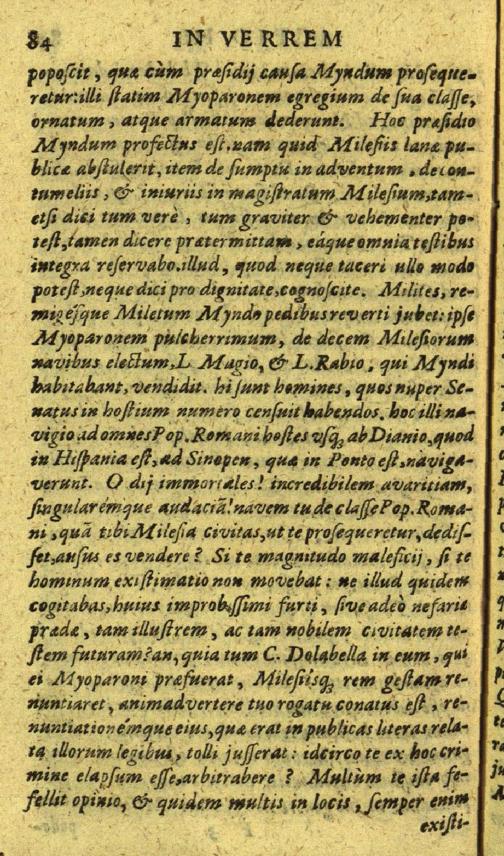 84 IN VERREM
poposcit, quæ cùm præsidij causa Myndum proseque-
retur: illi statim Myoparonem egregium de sua classe,
ornatum, atque armatum dederunt. Hoc præsidio
Myndum profectus est. nam quid Milesiis lanæ pu-
blicæ abstulerit, item de sumptu in adventum, de con-
tumeliis, & iniuriis in magistratum Milesium, tam-
etsi dici tum verè, tum graviter & vehementer po-
test, tamen dicere prætermittam, eaque omnia testibus
integra reservabo. illud, quod neque taceri ullo modo
potest, neque dici pro dignitate, cognoscite. Milites, re-
migésque Miletum Myndo pedibus reverti jubet: ipse
Myoparonem pulcherrimum, de decem Milesiorum
navibus electum, L Magio, & L. Rabio, qui Myndi
habitabant, vendidit. hi sunt homines, quos nuper Se-
natus in hostium numero censuit habendos. hoc illi na-
vigio ad omnes Pop. Romani hostes usq; ab Dianio, quod
in Hispania est, ad Sinopen, quæ in Ponto est, naviga-
verunt. O dij immortales! incredibilem avaritiam,
singularémque audaciā! navem tu de classe Pop. Roma-
ni, quā tibi Milesia civitas, ut te prosequeretur, dedis-
set, ausus es vendere? Si te magnitudo maleficij, si te
hominum existimatio non movebat: ne illud quidem
cogitabas, huius improbissimi furti, sive adeò nefariæ
prædæ, tam illustrem, ac tam nobilem civitatem te-
stem futuram? an, quia tum C. Dolabella in eum, qui
ei Myoparoni præfuerat, Milesiísq; rem gestam re-
nuntiaret, animadvertere tuo rogatu conatus est, re-
nuntiationémque eius, quæ erat in publicas literas rela-
ta illorum legibus, tolli jusserat: idcirco te ex hoc cri-
mine elapsum esse, arbitrabere? Multùm te ista fe-
fellit opinio, & quidem multis in locis, semper enim
existi-